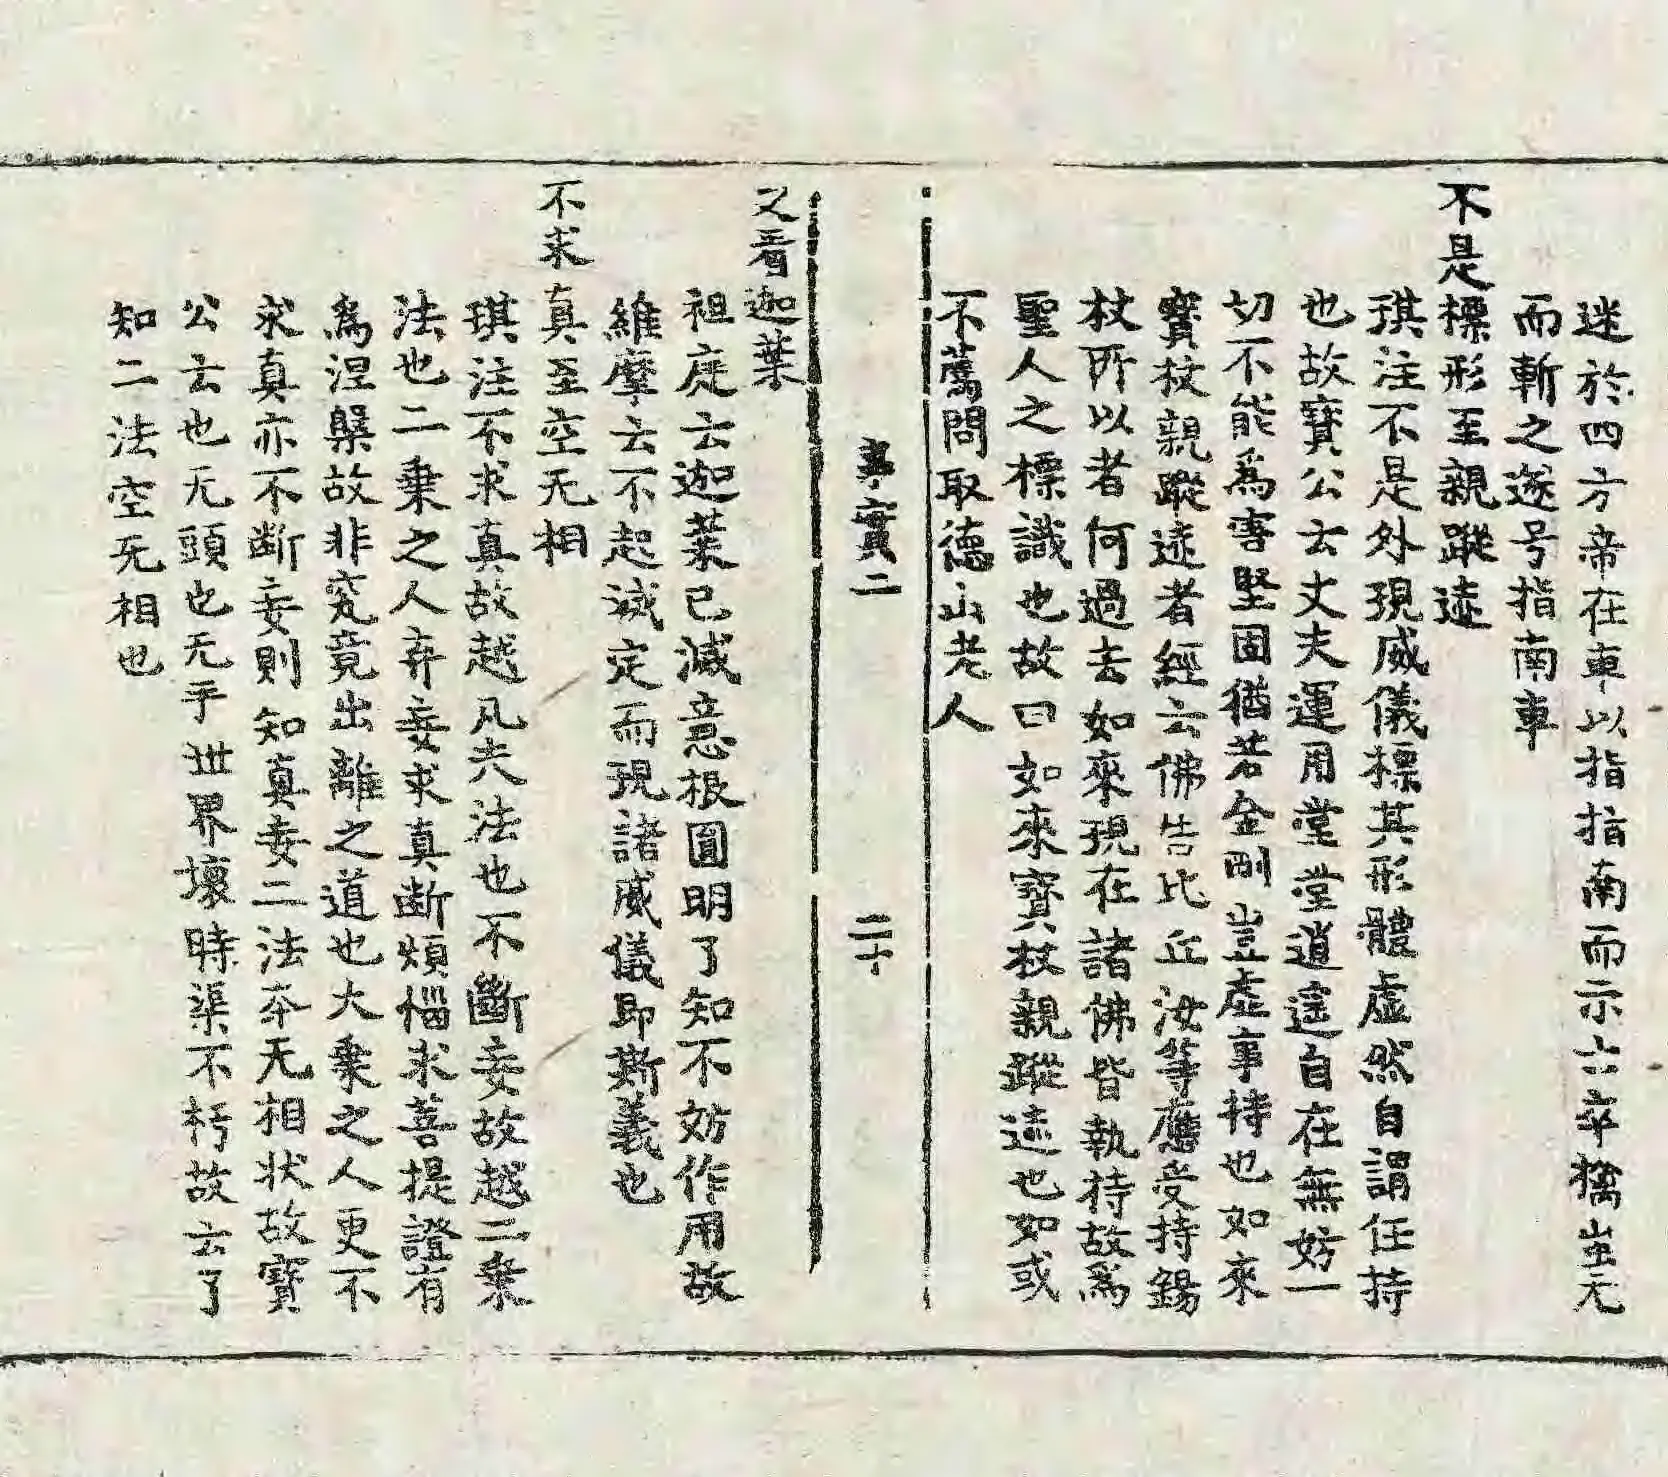 迷於四方帝在車以指指南而示六卒擒蚩尤
而斬之遂号指南車
不是標形至親蹤迹
琪注不是外現威儀標其形體虛然自謂任持
也故寶公云丈夫運用堂堂逍遙自在無妨一
切不能為害堅固猶若金剛豈虛事持也如來
寶杖親蹤迹者經云佛告比丘汝等應受持錫
杖所以者何過去如來現在諸佛皆執持故為
聖人之標識也故曰如來寶杖親蹤迹也如或
不薦問取德山老人
事實二 二十
又看迦葉
祖庭云迦葉已滅意根圓明了知不妨作用故
維摩云不起滅定而現諸威儀即斯義也
不求真至空无相
琪注不求真故越凡夫法也不斷妄故越二乗
法也二乗之人弃妄求真断煩惱求菩提證有
為涅槃故非究竟出離之道也大乗之人更不
求真亦不断妄則知真妄二法夲无相状故寶
公云也无頭也无手世界壞時渠不朽故云了
知二法空无相也